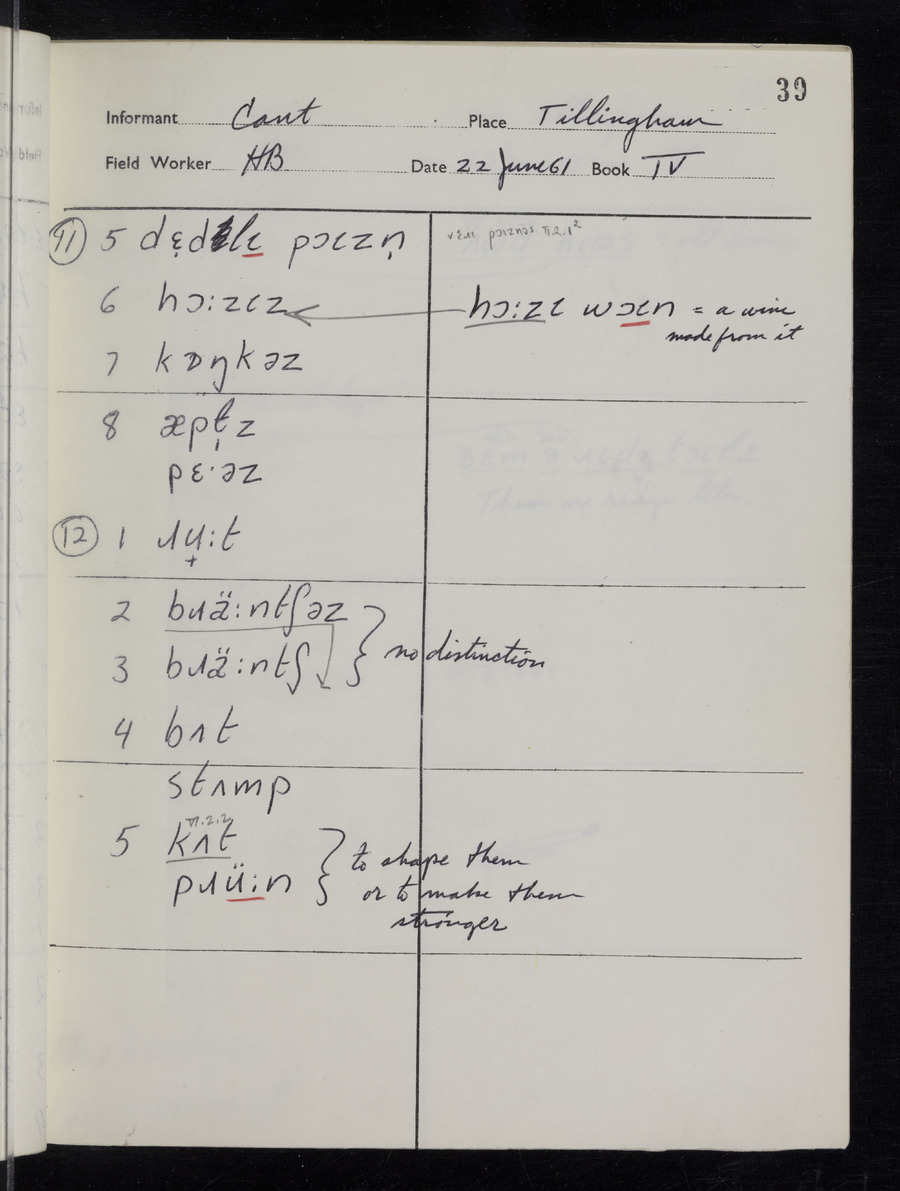 39
Informant Cant Place Tillingham
Field Worker HB Date 22 June 61 Book IV
11 5 dɛ̣dlɩ pɔɩzṇ
6 hɔːzɩz hɔːzɩ wɔɩn = a wine
made from it
7 kɒŋkəz
8 æpt̩z
pɛˑəz
12 1 ɹʉ̟ːt
2 bɹäːntʃəz
3 bɹäːntʃ } no distinction
4 bʌt
stʌmp
VI.2.2
5 kʌt } to shape them
pɹüːn or to make them
stronger